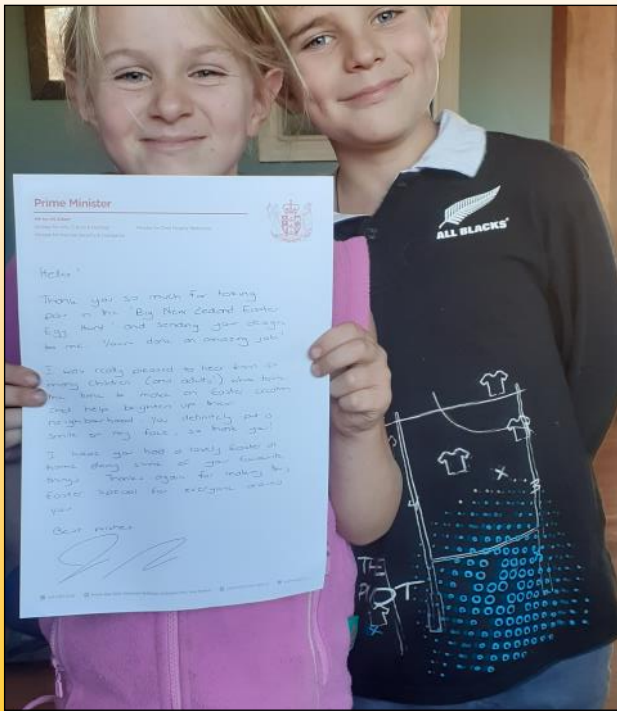 Prime Minister
Hello!
Thank you so much for taking
part in the "Big New Zealand Easter
Egg Hunt" and sending your design
to me. You've done an amazing job!
I was really pleased to hear from so
many children (and adults) who took
the time to make an Easter creation
and help brighten up their
neighbourhood. You definitely put a
smile on my face, so thank you!
I hope you had a lovely Easter at
home doing some of your favourite
things. Thanks again for making this
Easter special for everyone around
you.
Best wishes
ALL BLACKS
THE